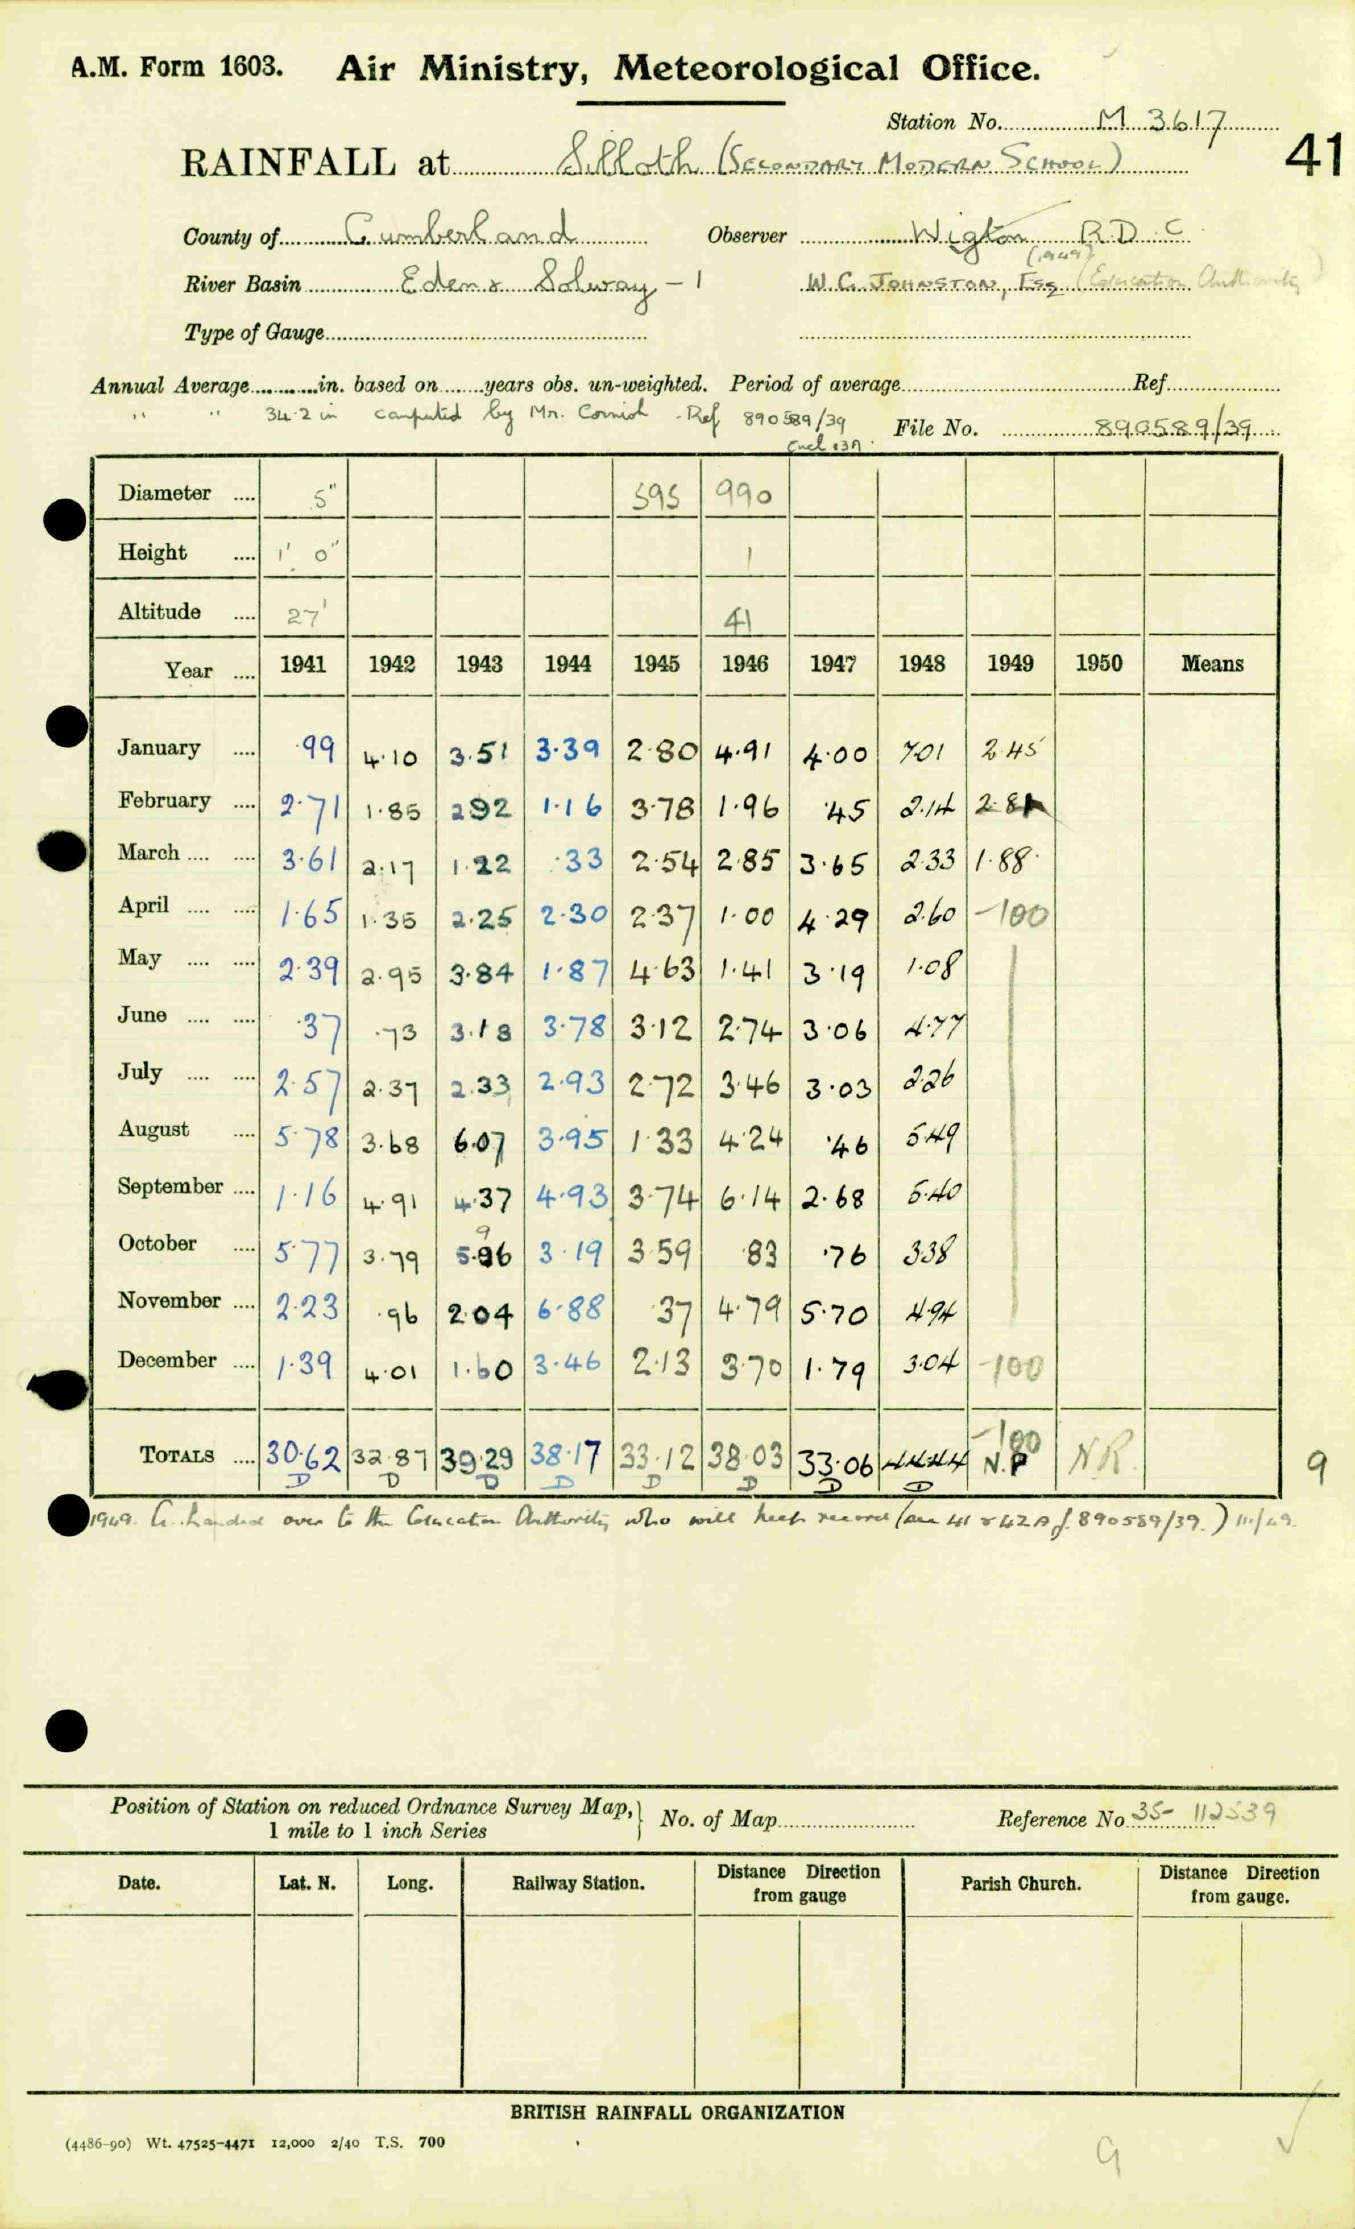 A.M. Form 1603. Air Ministry, Meteorological Office.
Station No. M 3617
41
RAINFALL at Silloth (SECONDARY MODERN SCHOOL)
County of Cumberland Observer Wigton R.D.C
(1949)
River Basin Eden & Solway - 1 W.G. JOHNSTON, Esq (Education Authority)
Type of Gauge
Annual Average in. based on years obs. un-weighted. Period of average Ref
" " 34.2 in computed by Mr. Cornish Ref 890589/39 File No. 890589/39
Diameter .... 5" 595 990
Height .... 1' 0" 1
Altitude .... 27' 41
Year .... 1941 1942 1943 1944 1945 1946 1947 1948 1949 1950 Means
January .... .99 4.10 3.51 3.39 2.80 4.91 4.00 7.01 2.45
February .... 2.71 1.85 2.92 1.16 3.78 1.96 .45 2.14 2.81
March .... .... 3.61 2.17 1.22 .33 2.54 2.85 3.65 2.33 1.88
April .... .... 1.65 1.35 2.25 2.30 2.37 1.00 4.29 2.60 -100
May .... .... 2.39 2.95 3.84 1.87 4.63 1.41 3.19 1.08
June .... .... .37 .73 3.18 3.78 3.12 2.74 3.06 4.77
July .... .... 2.57 2.37 2.33 2.93 2.72 3.46 3.03 2.26
August .... 5.78 3.68 6.07 3.95 1.33 4.24 .46 5.49
September .... 1.16 4.91 4.37 4.93 3.74 6.14 2.68 5.40
9
October .... 5.77 3.79 5.96 3.19 3.59 .83 .76 3.38
November .... 2.23 .96 2.04 6.88 .37 4.79 5.70 4.94
December .... 1.39 4.01 1.60 3.46 2.13 3.70 1.79 3.04 -100
-100
TOTALS .... 30.62 32.87 39.29 38.17 33.12 38.03 33.06 44.44 N.P N.R. 9
D D D D D D D D
1949. G. handed over to the Education Authority who will keep record (see 41 & 42A of 890589/39.) 11/49.
Position of Station on reduced Ordnance Survey Map, } No. of Map Reference No 35- 112539
1 mile to 1 inch Series
Date. Lat. N. Long. Railway Station. Distance Direction from gauge Parish Church. Distance Direction from gauge.
BRITISH RAINFALL ORGANIZATION
(4486-90) Wt. 47525-4471 12,000 2/40 T.S. 700